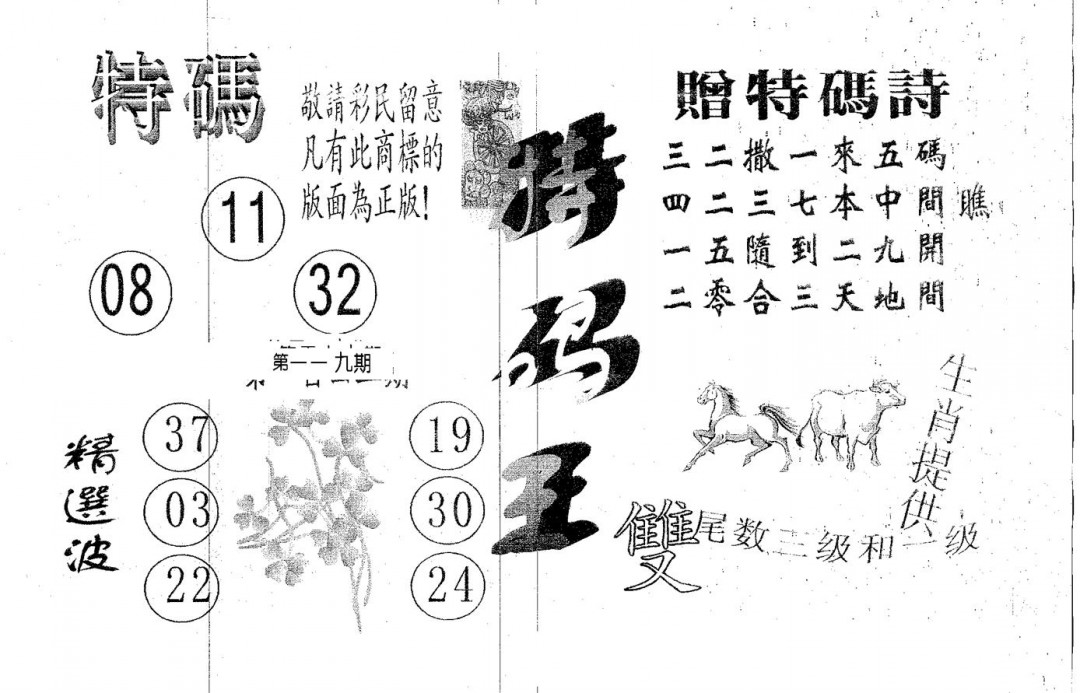 特碼
敬請彩民留意
凡有此商標的
版面為正版!
11
08
32
第一一九期
精選波
37
03
22
19
30
24
特码王
贈特碼詩
三二撒一來五碼
四二三七本中間瞧
一五隨到二九開
二零合三天地間
生肖提供
雙尾数二级和一级